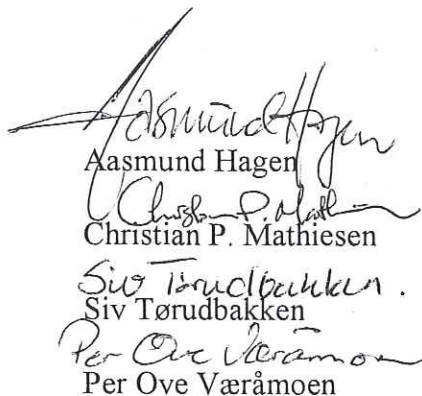 Aasmund Hagen
Aasmund Hagen
Christian P. Mathiesen
Siv Tørudbakken.
Siv Tørudbakken
Per Ove Væråmoen
Per Ove Væråmoen